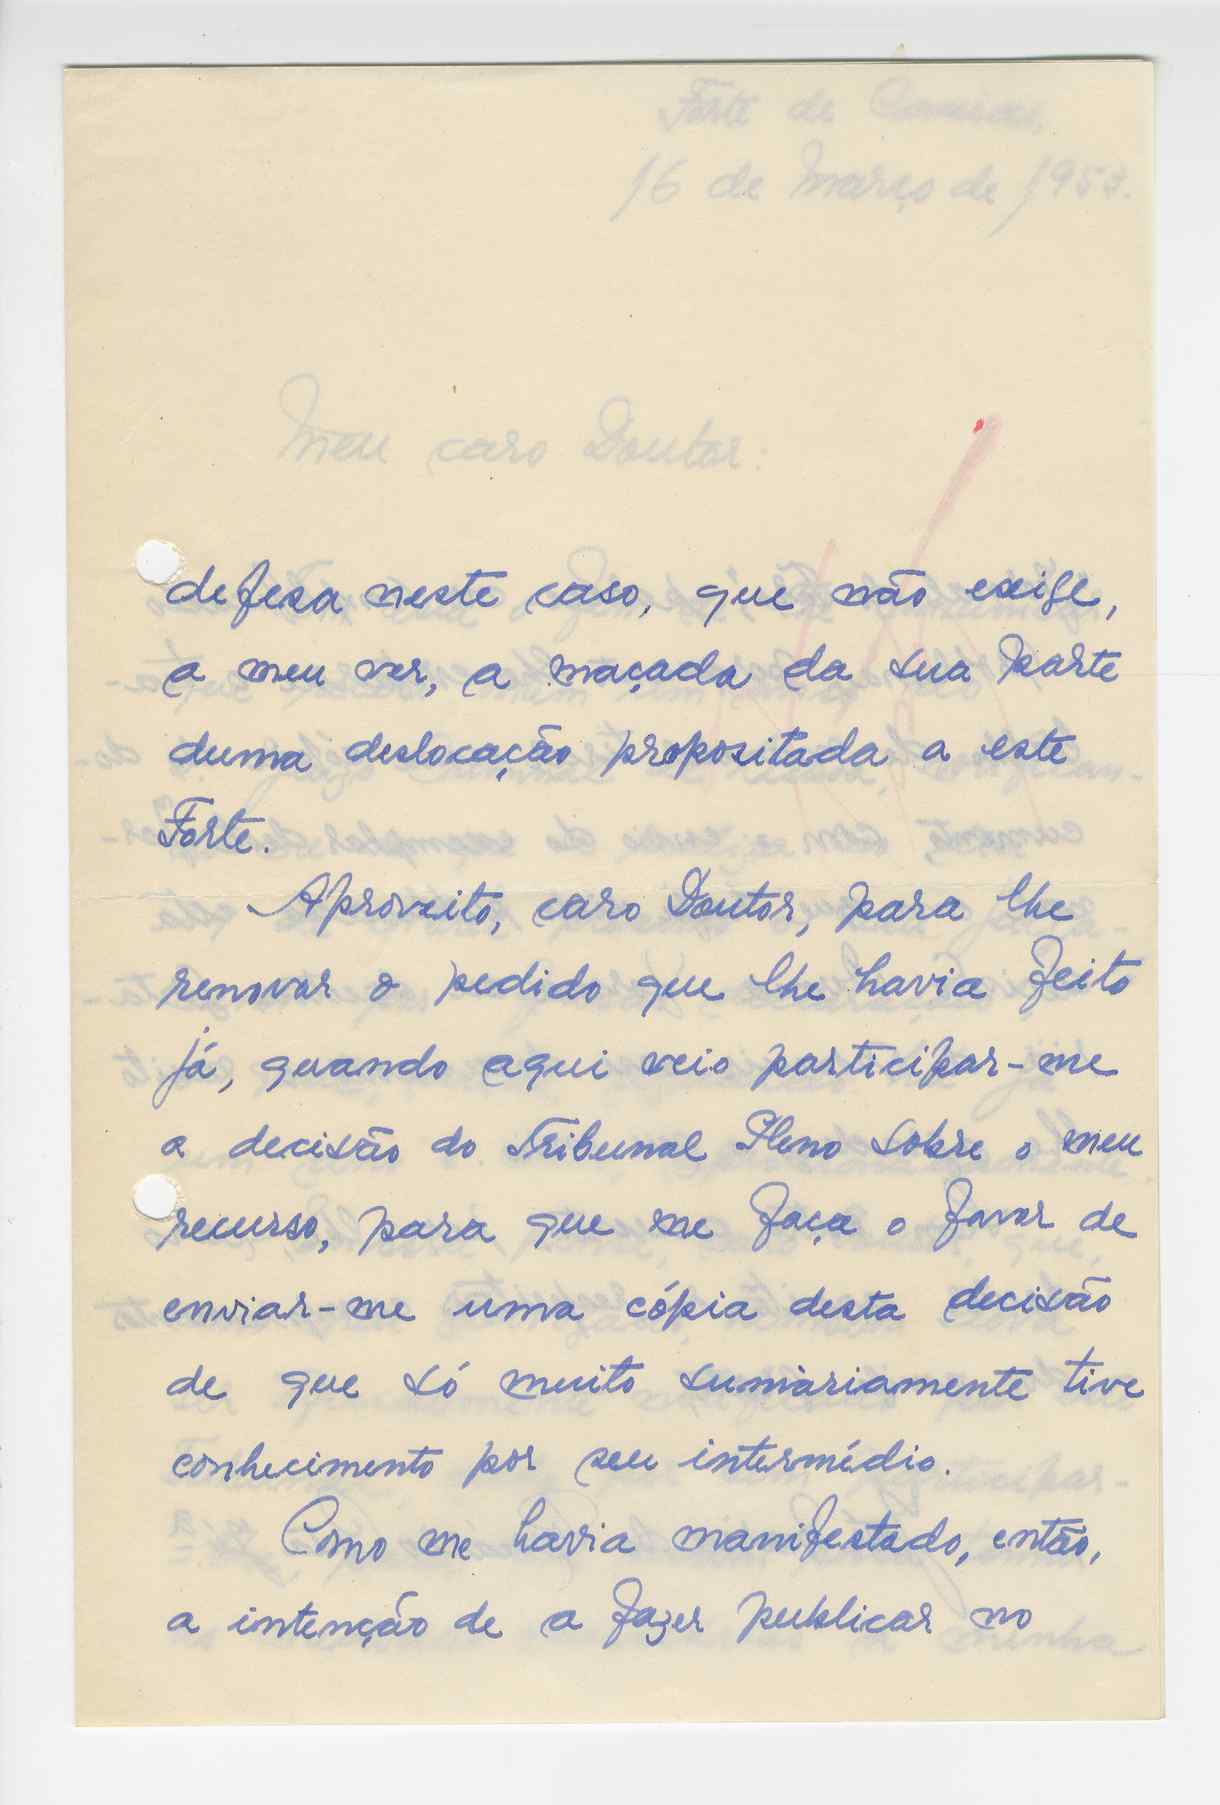 Forte de Caxias,
16 de Março de 1953.
Meu caro Doutor:
defesa neste caso, que não exige,
a meu ver, a maçada da sua parte
duma deslocação propositada a este
Forte.
Aproveito, caro Doutor, para lhe
renovar o pedido que lhe havia feito
já, quando aqui veio participar-me
a decisão do Tribunal Pleno sobre o meu
recurso, para que me faça o favor de
enviar-me uma cópia desta decisão
de que só muito sumàriamente tive
conhecimento por seu intermédio.
Como me havia manifestado, então,
a intenção de a fazer publicar no
minha